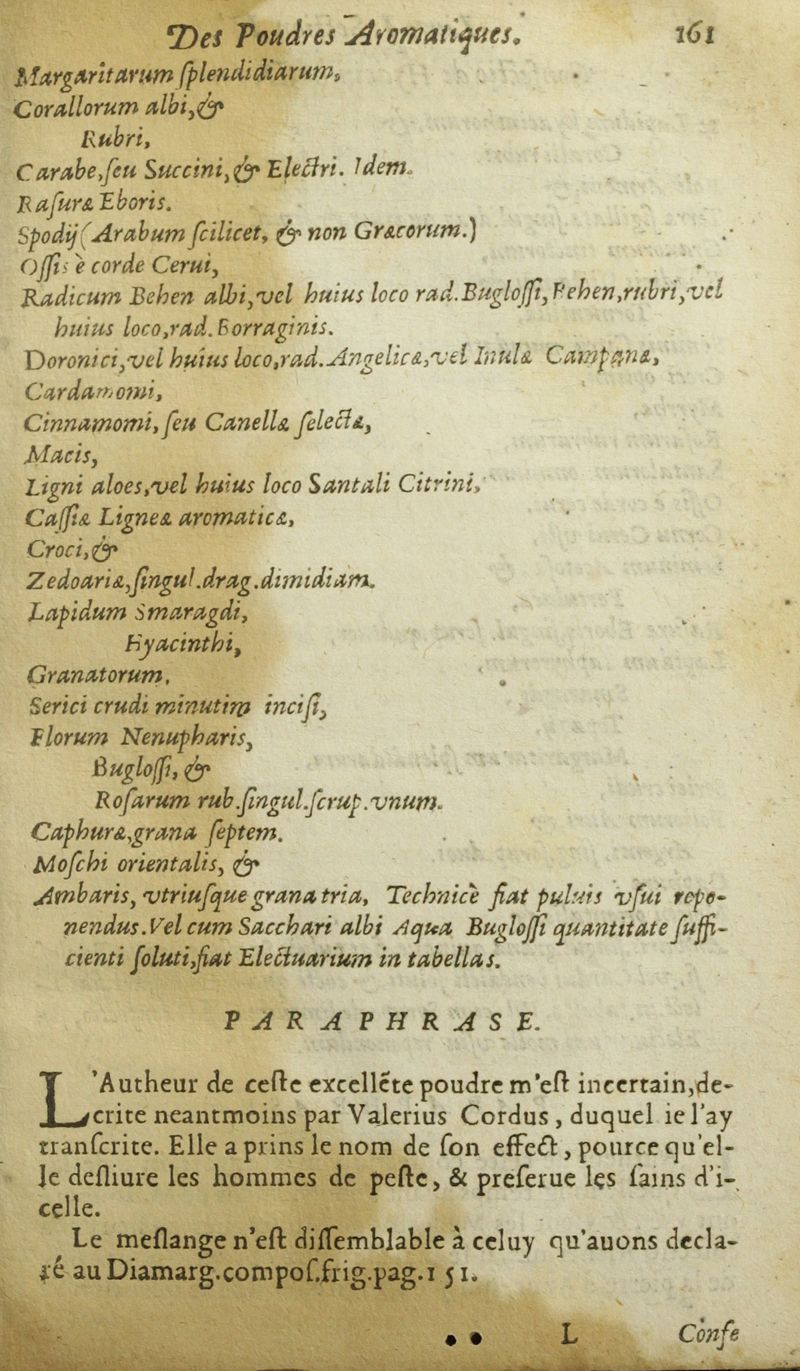 Des Poudres Aromatiques. 161
Margaritarum ſplendidiarum,
Corallorum albi, &
Rubri,
Carabe, ſeu Succini, & Electri. Idem.
Raſuræ Eboris.
Spodij (Arabum ſcilicet, & non Græcorum.)
Oſſis è corde Cerui,
Radicum Behen albi, vel huius loco rad. Bugloſſi, Behen, rubri, vel
huius loco, rad. Borraginis.
Doronici, vel huius loco, rad. Angelicæ, vel Inulæ Campanæ,
Cardamomi,
Cinnamomi, ſeu Canellæ ſelectæ,
Macis,
Ligni aloes, vel huius loco Santali Citrini,
Caſſiæ Ligneæ aromaticæ,
Croci, &
Zedoariæ, ſingul. drag. dimidiam.
Lapidum Smaragdi,
Hyacinthi,
Granatorum,
Serici crudi minutim inciſi,
Florum Nenupharis,
Bugloſſi, &
Roſarum rub. ſingul. ſcrup. vnum.
Caphuræ, grana ſeptem.
Moſchi orientalis, &
Ambaris, vtriuſque grana tria, Technicè fiat puluis vſui repo-
nendus. Vel cum Sacchari albi Aqua Bugloſſi quantitate ſuffi-
cienti ſoluti, fiat Electuarium in tabellas.
PARAPHRASE.
L'Autheur de ceſte excellẽte poudre m'eſt incertain, de-
crite neantmoins par Valerius Cordus, duquel ie l'ay
tranſcrite. Elle a prins le nom de ſon effect, pource qu'el-
le deſliure les hommes de peſte, & preſerue les ſains d'i-
celle.
Le meſlange n'eſt diſſemblable à celuy qu'auons decla-
ré au Diamarg. compoſ. frig. pag. 151.
L Confe